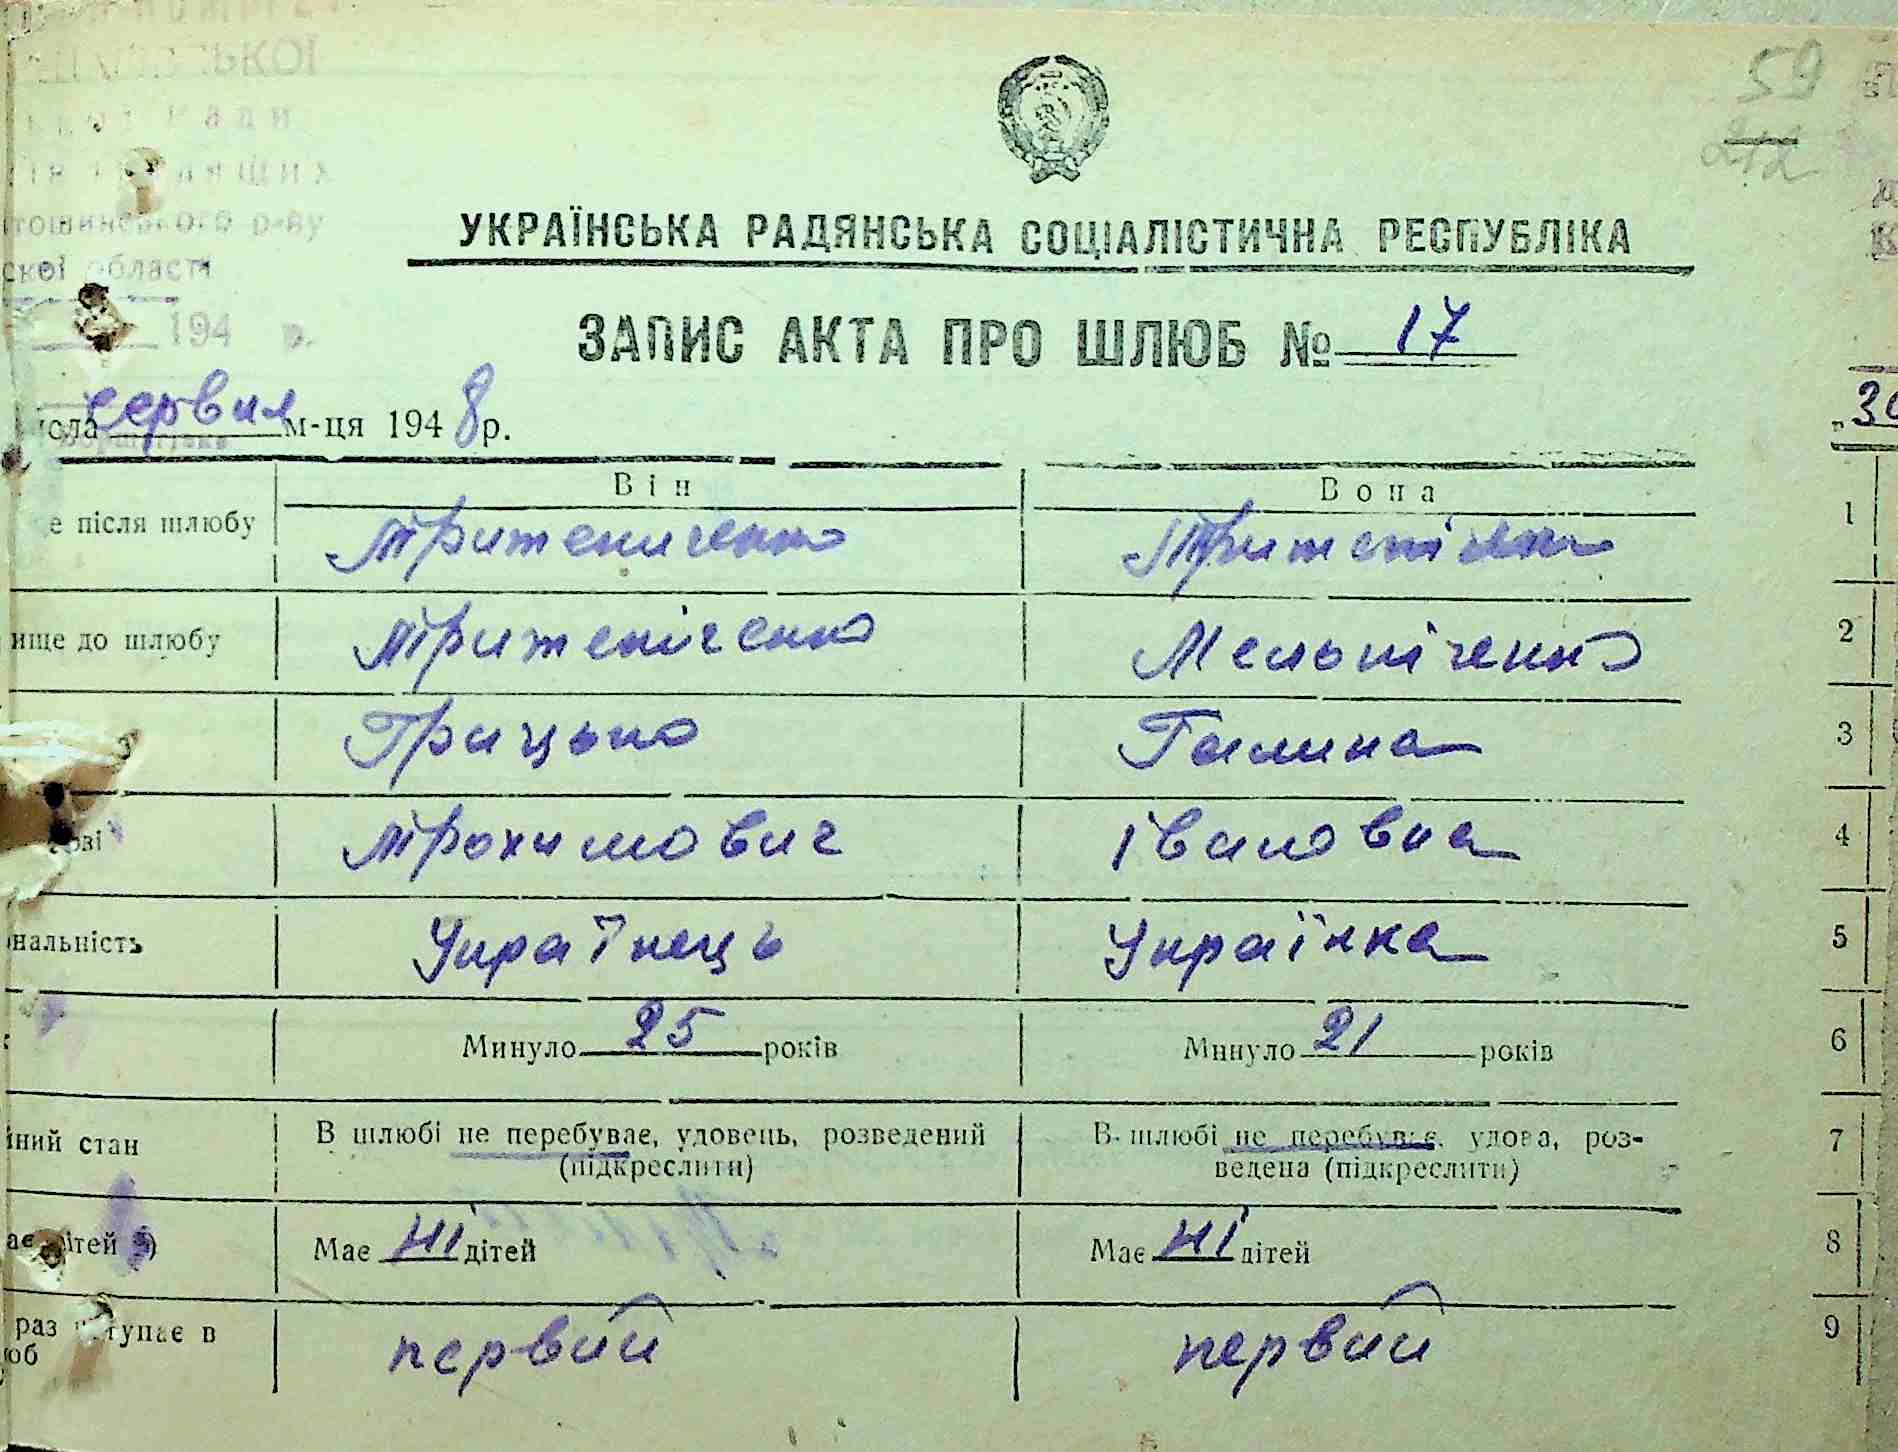 СЬКОЇ
ради
тошинського р-ну
ської області
194 р.
59
212
УКРАЇНСЬКА РАДЯНСЬКА СОЦІАЛІСТИЧНА РЕСПУБЛІКА
ЗАПИС АКТА ПРО ШЛЮБ № 17
исла червня м-ця 1948 р.
Він Вона
е після шлюбу Тритениченко Тритеніченко 1
ище до шлюбу Тритеніченко Мельніченко 2
Грицько Галина 3
ові Трохимович Івановна 4
ональність Українець Українка 5
Минуло 25 років Минуло 21 років 6
йний стан В шлюбі не перебуває, удовець, розведений В шлюбі не перебуває, удова, роз- 7
(підкреслити) ведена (підкреслити)
ає дітей Має ні дітей Має ні дітей 8
раз вступає в первий первий 9
юб